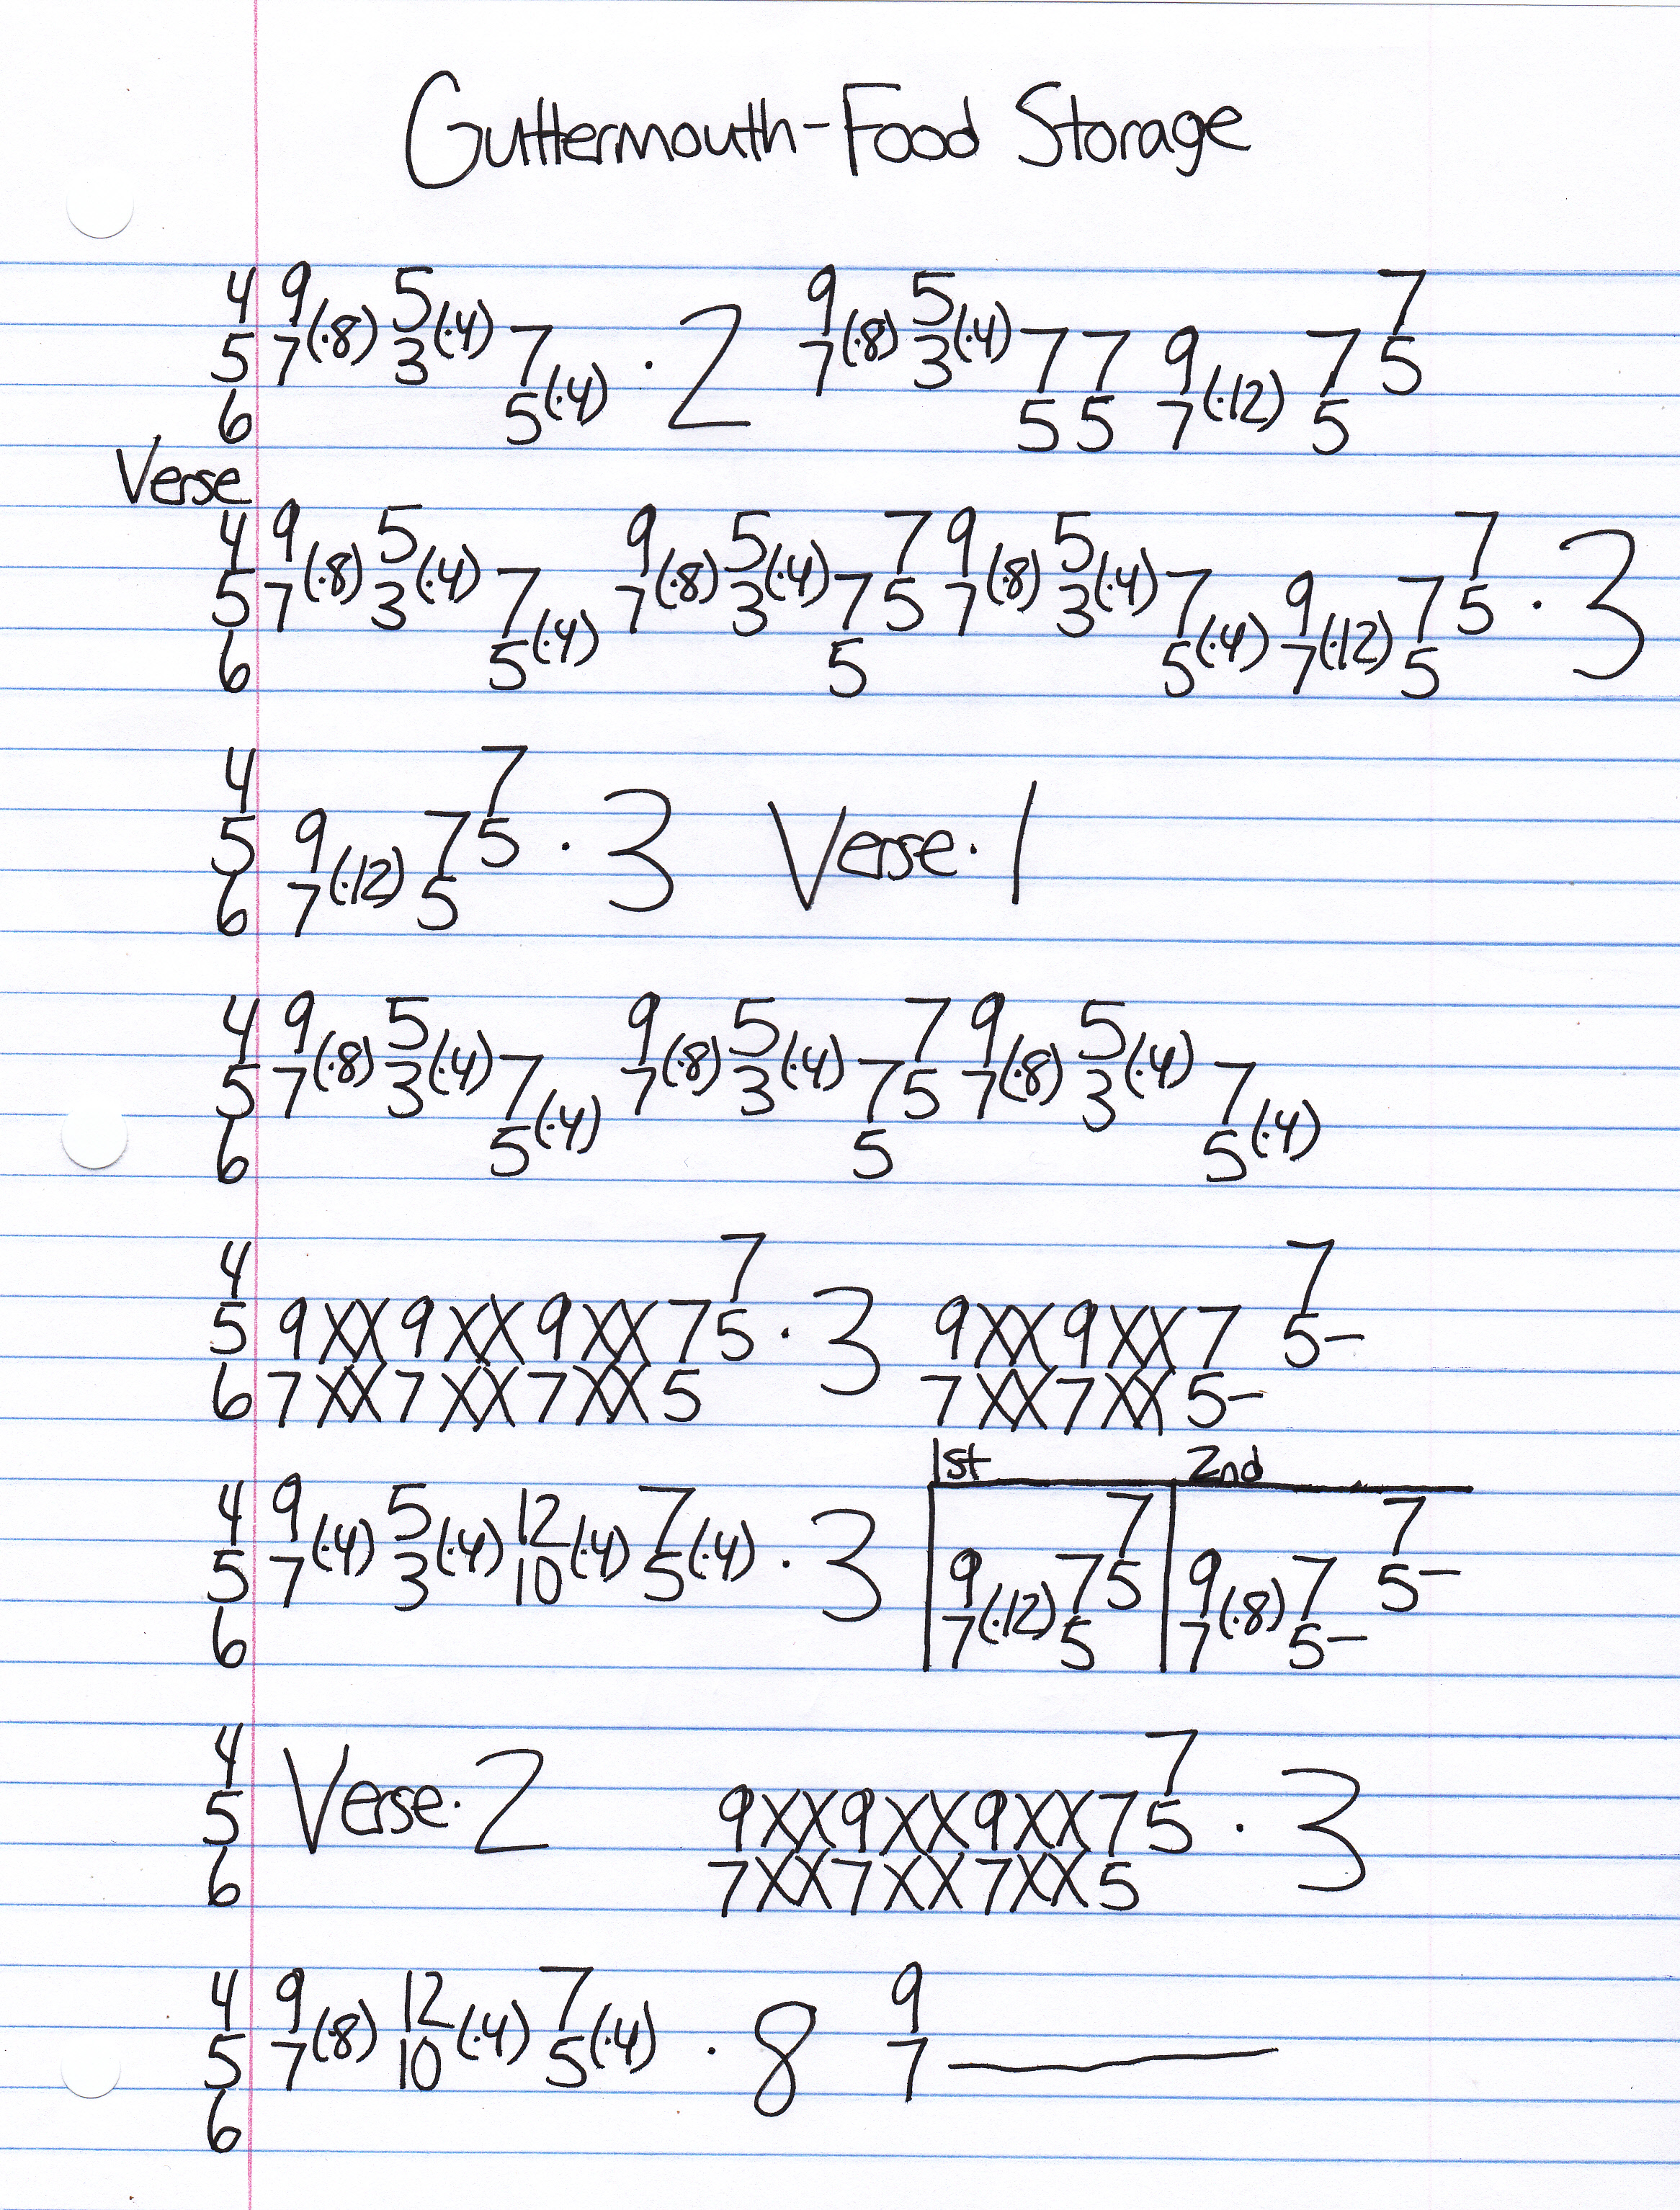 Guttermouth-Food Storage
4 9 5 9 5 7
5 7(·8) 3(·4) 7 · 2 7(·8) 3(·4) 7 7 9 7 5
6 5(·4) 5 5 7(·12) 5
Verse
4 9 5 9 5 7 9 5 7
5 7(·8) 3(·4) 7 7(·8) 3(·4) 7 5 7(·8) 3(·4) 7 9 7 5 · 3
6 5(·4) 5 5(·4) 7(·12) 5
4 7
5 9 7 5 · 3 Verse · 1
6 7(·12) 5
4 9 5 9 5 7 9 5
5 7(·8) 3(·4) 7 7(·8) 3(·4) 7 5 7(·8) 3(·4) 7
6 5(·4) 5 5(·4)
4 7 7
5 9XX9XX9XX75 · 3 9XX9XX7 5-
6 7XX7XX7XX5 7XX7XX5-
1st 2nd
4 9 5 12 7 7 7
5 7(·4) 3(·4) 10(·4) 5(·4) · 3 9 7 5 9 7 5-
6 7(·12) 5 7(·8) 5-
4 7
5 Verse · 2 9XX9XX9XX75 · 3
6 7XX7XX7XX5
4 9 12 7 9
5 7(·8) 10(·4) 5(·4) · 8 7
6